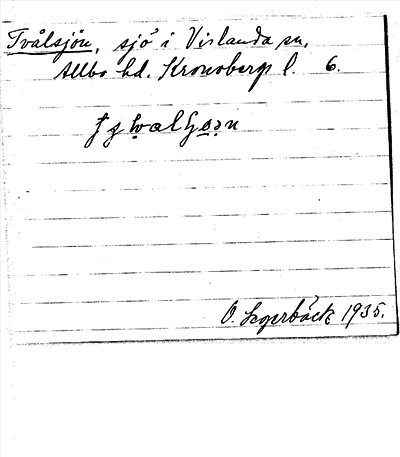 Tvålsjön, sjö i Vislanda sn,
Allbo hd. Kronoberg l. 6.
O. Lagerbäck 1935.